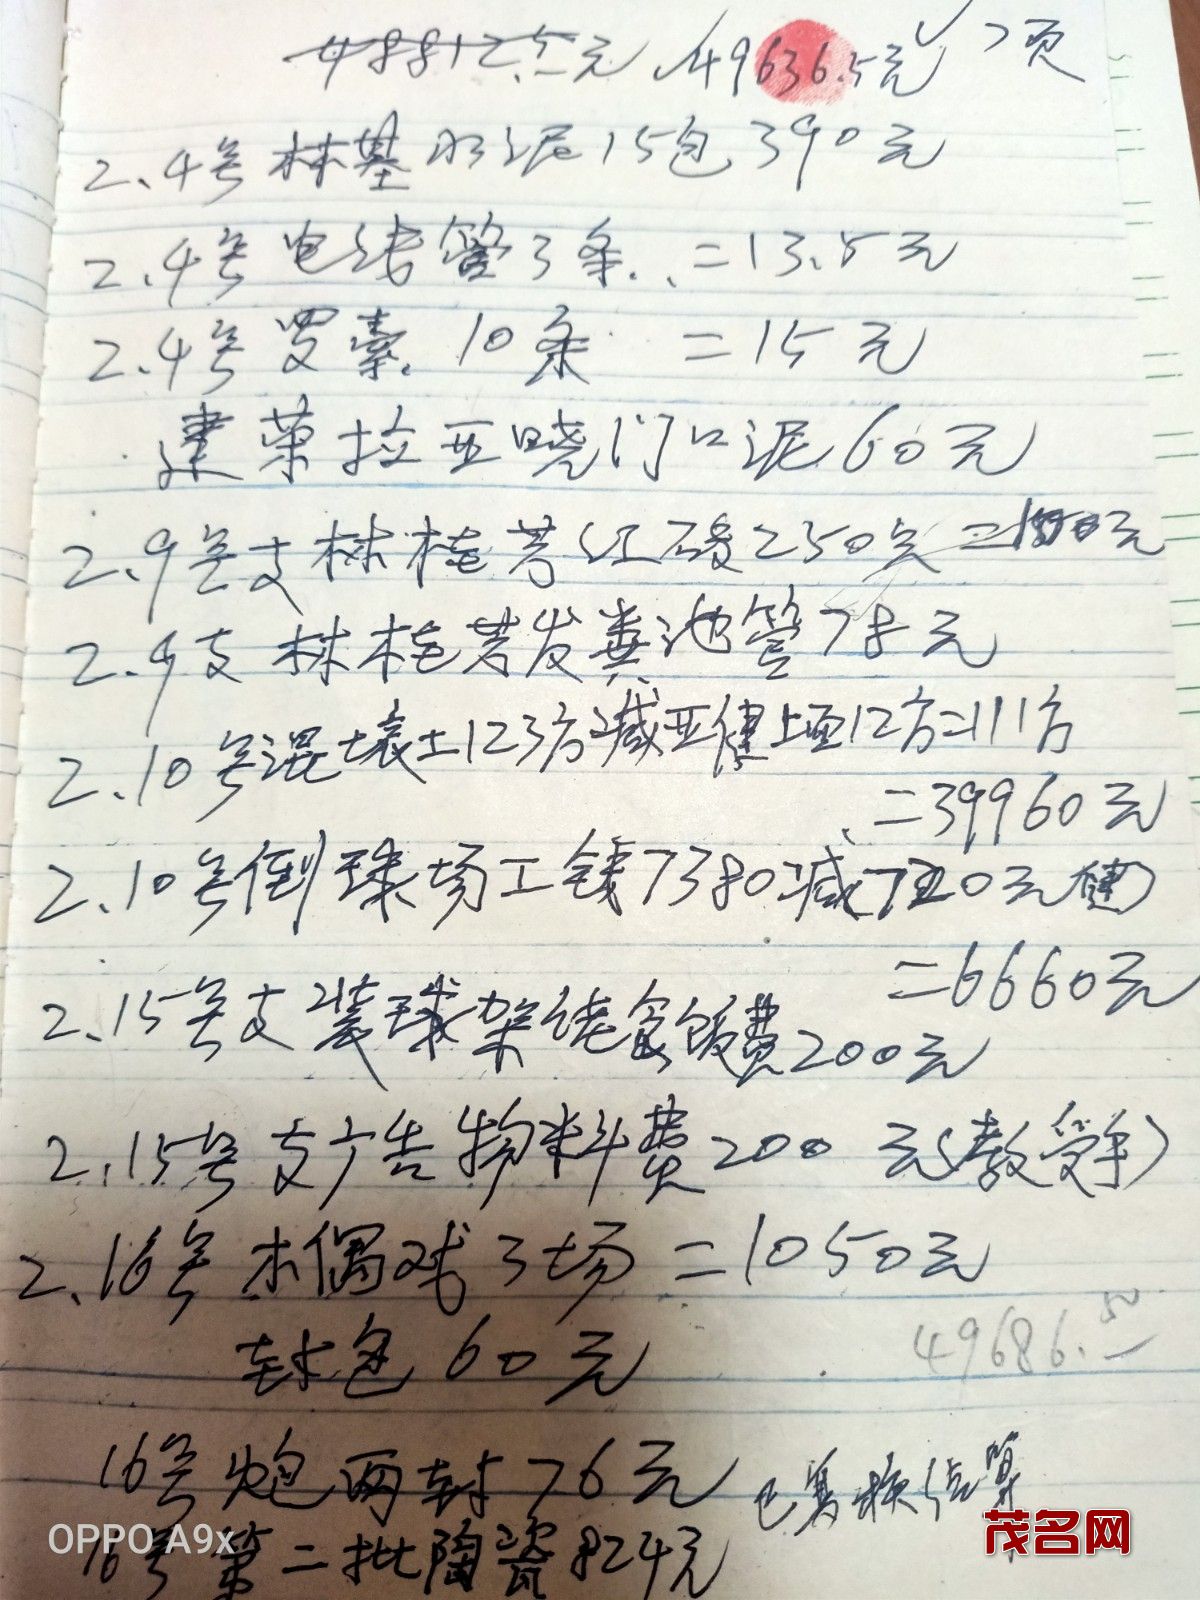 48812.5元 49636.5元 7页
2.4号林基水泥15包390元
2.4号电线管3条.=13.5元
2.4号罗索.10条=15元
建荣拉亚晓门口泥60元
2.9号支林桂芳红砖250只=元
2.4支林桂芳发粪池管78元
2.10号混壤土123方减亚健上面12方=111方
=39960元
2.10号倒球场工钱7380减720元(健)
=6660元
2.15号支装球架佬食饭费200元
2.15号支广告物料费200元(教受手)
2.16号木偶戏3场=1050元
封包60元
49686.50
16号炮两封76元
已算数结算
16号第二批陶瓷824元
OPPO A9x
茂名网